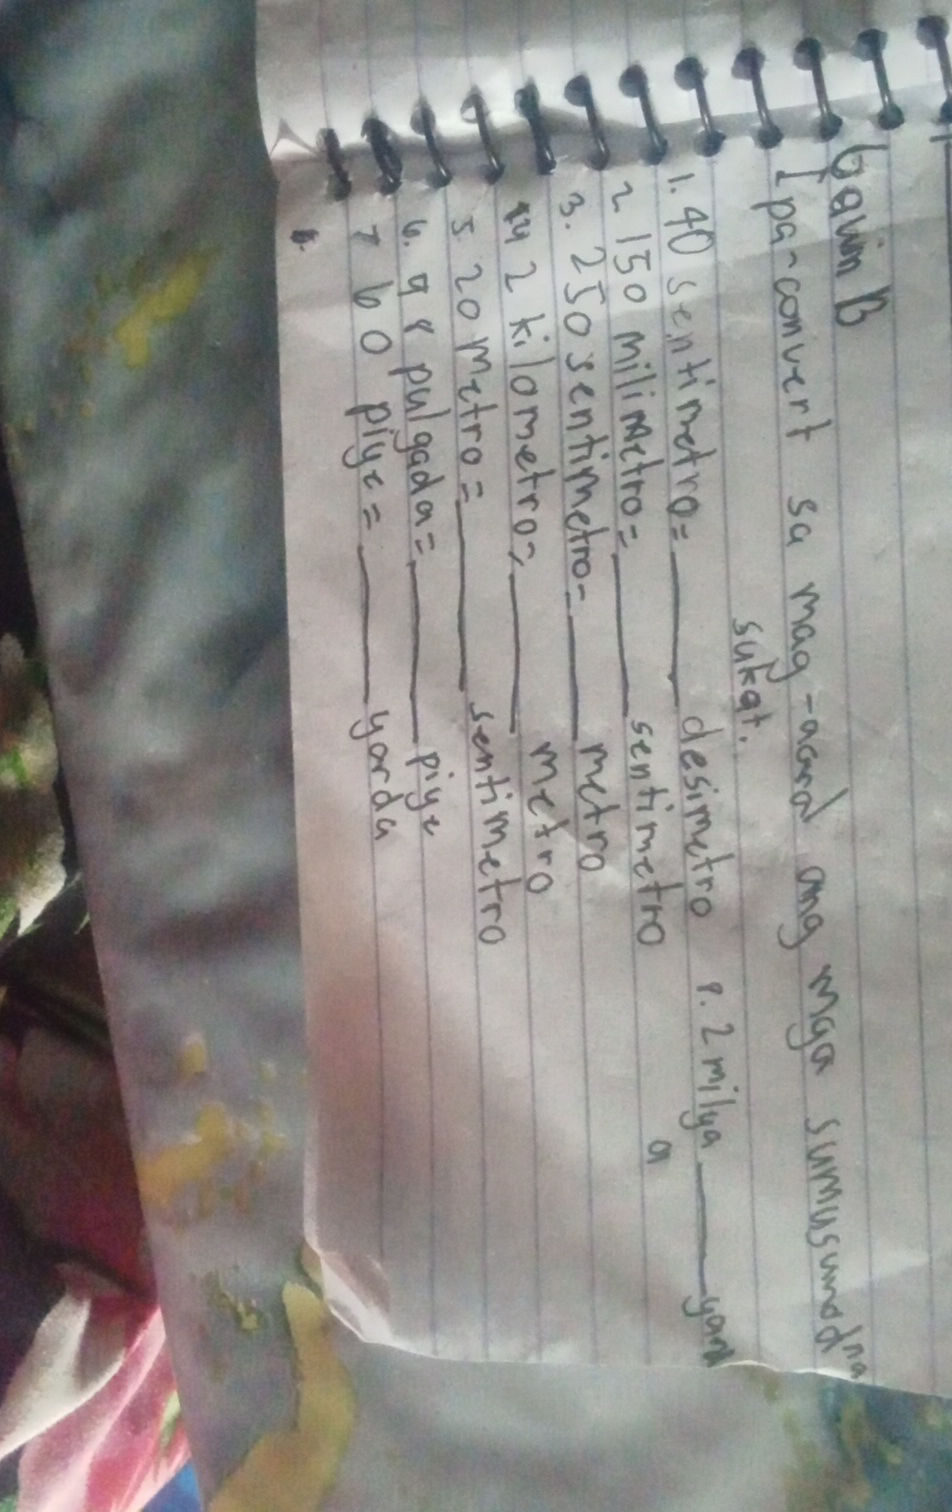 Gawin B
Ipa-convert sa mag-aaral ang mga sumusunod na
sukat.
1. 40 sentimetro= ______ desimetro
2. 150 milimetro= ______ sentimetro
3. 250 sentimetro= ______ metro
4 2 kilometro= ______ metro
5. 20 metro= ______ sentimetro
6. 98 pulgada= ______ piye
7 60 piye= ______ yarda
8. 2 milya ______ yard
9